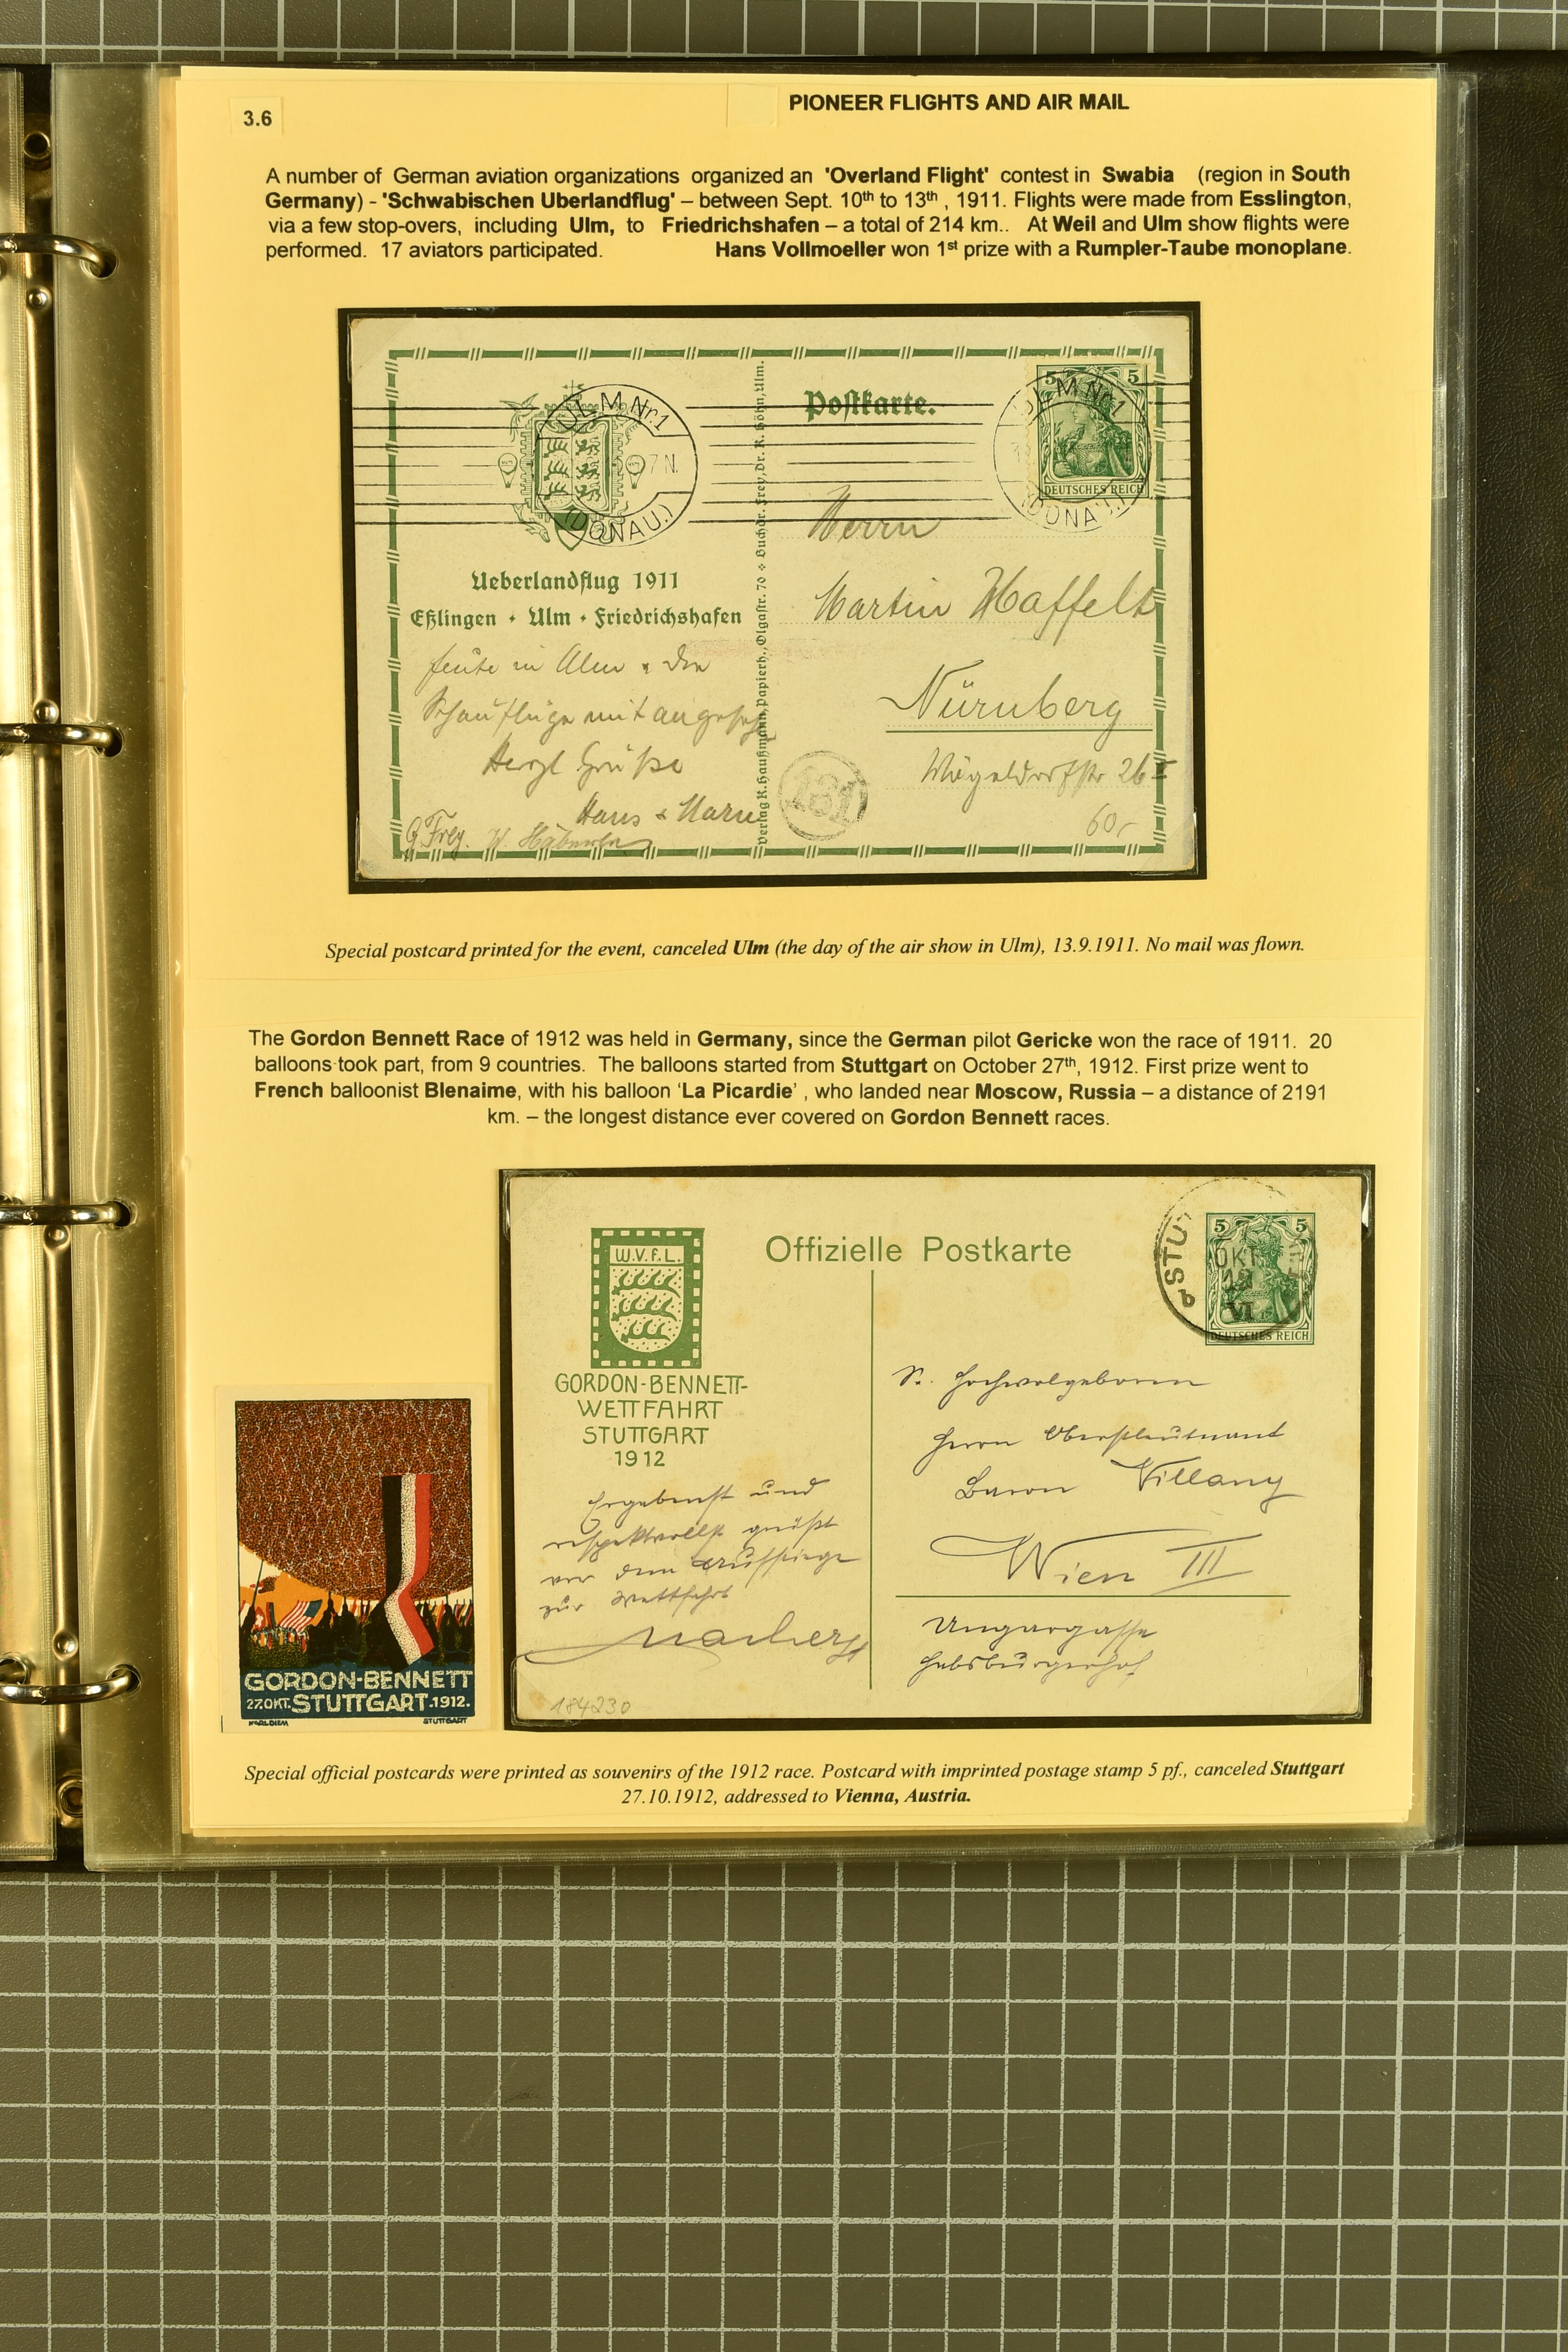 3.6
PIONEER FLIGHTS AND AIR MAIL
A number of German aviation organizations organized an 'Overland Flight' contest in Swabia (region in South
Germany) - 'Schwabischen Uberlandflug' – between Sept. 10th to 13th , 1911. Flights were made from Esslington,
via a few stop-overs, including Ulm, to Friedrichshafen – a total of 214 km.. At Weil and Ulm show flights were
performed. 17 aviators participated. Hans Vollmoeller won 1st prize with a Rumpler-Taube monoplane.
ULM Nr.1
7 N.
(DONAU.)
Postkarte.
5 5
ULM Nr.1
DEUTSCHES REICH
(DONAU.)
Ueberlandflug 1911
Eßlingen · Ulm · Friedrichshafen
Verlag K. Haußmann, Papierh., Olgastr. 70 ÷ Buchdr. Frey, Dr. K. Höhn, Ulm.
Herrn
Martin Haffelt
Nürnberg
26 I
60,-
heute in Ulm & die
Schauflüge mit angesehen
Herzl Grüße
Hans & Marie
G Frey.
131
Special postcard printed for the event, canceled Ulm (the day of the air show in Ulm), 13.9.1911. No mail was flown.
The Gordon Bennett Race of 1912 was held in Germany, since the German pilot Gericke won the race of 1911. 20
balloons took part, from 9 countries. The balloons started from Stuttgart on October 27th, 1912. First prize went to
French balloonist Blenaime, with his balloon 'La Picardie' , who landed near Moscow, Russia – a distance of 2191
km. – the longest distance ever covered on Gordon Bennett races.
W.V.f.L.
GORDON-BENNETT-
WETTFAHRT
STUTTGART
1912
Offizielle Postkarte
STU
OKT
12
VI
5 5
DEUTSCHES REICH
S. Hochwolgeboren
Herrn Oberstleutnant
Baron Villany
Wien III
Ungargasse
Habsburgerhof
Ergebenst und
respektvollst grüßt
vor dem Aufstiege
zur Wettfahrt
184230
GORDON-BENNETT
27.OKT. STUTTGART.1912.
KARL DIEM STUTTGART
Special official postcards were printed as souvenirs of the 1912 race. Postcard with imprinted postage stamp 5 pf., canceled Stuttgart
27.10.1912, addressed to Vienna, Austria.